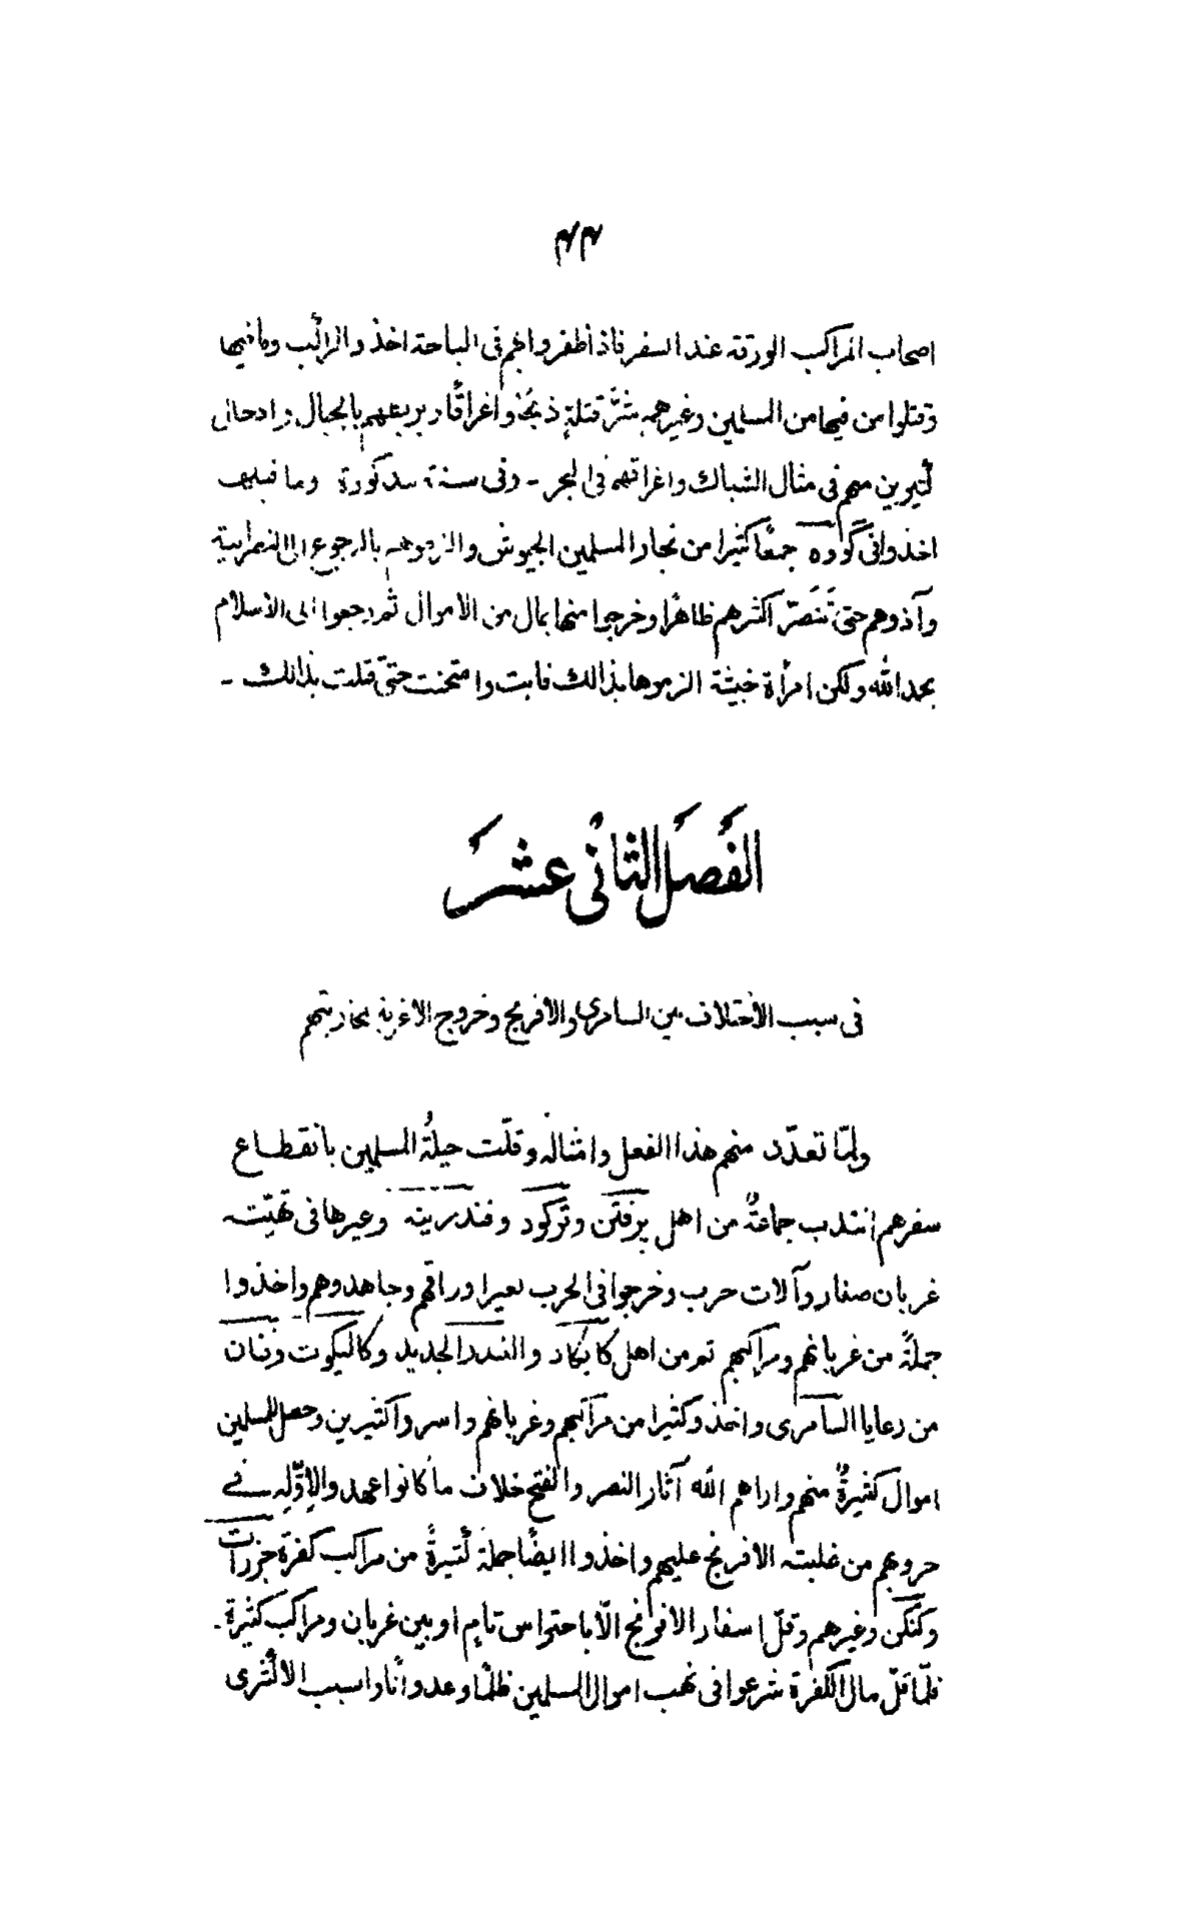 ۴۴
اصحاب المراكب الورقة عند السفر فاذا ظفروا بهم فى الباحة اخذوا المراكب وما فيها
وقتلوا من فيها من المسلمين وغيرهم بشرّ قتلة ذبحًا واغراقًا وبربطهم بالحبال وادخال
كثيرين منهم فى مثال الشباك واغراقهم فى البحر - وفى سنة مذكورة وما قبلها
اخذوا فى گووه جمعًا كثيرا من تجار المسلمين الحبوش والزموهم بالرجوع الى النصرانية
وآذوهم حتى تَنَصّر اكثرهم ظاهرًا وخرجوا منها بمال من الاموال ثم رجعوا الى الاسلام
بحمد الله ولكن امرأة حبشة الزموها بذالك فابت وامتحنت حتى قتلت بذالك -
الفَصَل الثانى عشرَ
فى سبب الاختلاف بين السامرى والافرنج وخروج الاغربة لمحاربتهم
ولمّا تعدّد منهم هذا الفعل وامثاله وقلّت حيلةُ المسلمين بانقطاع
سفرهم انتدب جماعةٌ من اهل پرفتن وتركود وفندرينة وغيرها فى تهيّئة
غربان صغار وآلات حرب وخرجوا فى الحرب بغير اوراقهم وجاهدوهم واخذوا
جملةً من غربانهم ومراكبهم ثم من اهل كابكاد والفندر الجديد وكاليكوت وفنان
من رعايا السامرى واخذوا كثيرا من مراكبهم وغربانهم واسروا كثيرين وحصل للمسلمين
اموال كثيرةٌ منهم واراهم الله آثار النصر والفتح خلاف ما كانوا عهدوا لاوّله فى
حروبهم من غلبة الافرنج عليهم واخذوا ايضًا جملة كثيرةً من مراكب كفرة جزرات
وكنكن وغيرهم وقلّ اسفار الافرنج الّا باحتراس تام او بين غربان ومراكب كثيرة -
فلمّا قلّ مال الكفرة شرعوا فى نهب اموال المسلمين ظلمًا وعدوانا واسبب الاكثرى